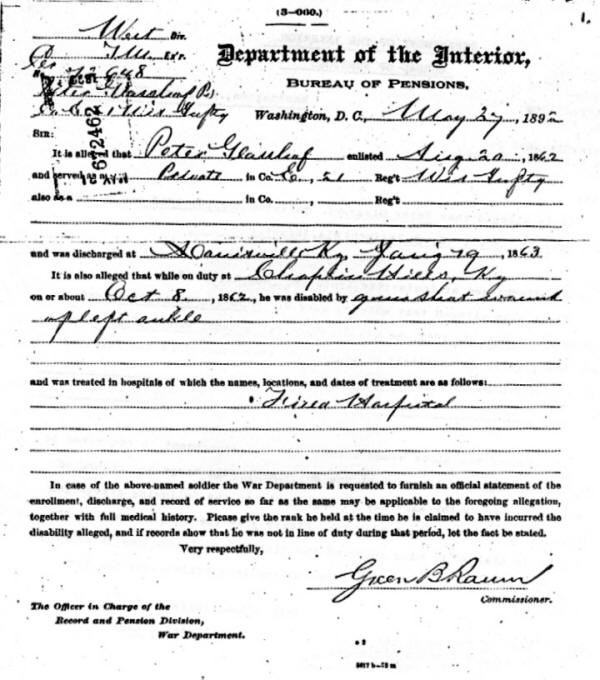 (3—060.)
1.
West Div.
J.M. Ex'r.
Department of the Interior,
BUREAU OF PENSIONS,
Washington, D. C., May 27, 1892
612462
SIR:
It is alleged that Peter enlisted Aug 20, 1862
and served as a Private in Co. E, 21 Reg't Wis Infty
also as a in Co. , Reg't
and was discharged at Louisville Ky Jany 19, 1863
It is also alleged that while on duty at Chaplin Hills, Ky
on or about Oct 8, 1862, he was disabled by gunshot wound
of left ankle
and was treated in hospitals of which the names, locations, and dates of treatment are as follows:
Field Hospital
In case of the above-named soldier the War Department is requested to furnish an official statement of the
enrollment, discharge, and record of service so far as the same may be applicable to the foregoing allegation,
together with full medical history. Please give the rank he held at the time he is claimed to have incurred the
disability alleged, and if records show that he was not in line of duty during that period, let the fact be stated.
Very respectfully,
Green B Raum
Commissioner.
The Officer in Charge of the
Record and Pension Division,
War Department.